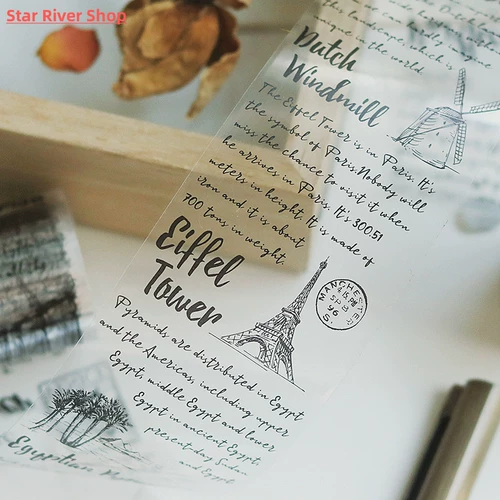 Star River Shop
unique in the world.
Dutch
Windmill
The Eiffel Tower is in Paris. It's
the symbol of Paris.Nobody will
miss the chance to visit it when
he arrives in Paris. It's 30051
meters in height. It is made of
iron and it is about
700 tons in weight.
Eiffel
Tower
MANCHESTER
Pyramids are distributed in Egypt
and the Americas, including upper
Egypt, middle Egypt and lower
Egypt in ancient Egypt,
present-day Sudan
and Egypt
Egyptian